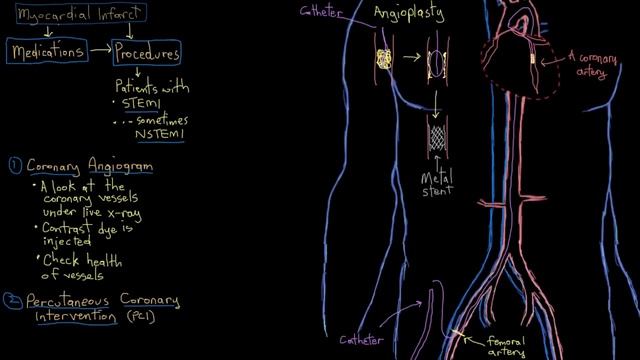 Myocardial Infarct
Medications
Procedures
Patients with
• STEMI
• ... sometimes
NSTEMI
① Coronary Angiogram
• A look at the
coronary vessels
under live x-ray
• Contrast dye is
injected
• Check health
of vessels
② Percutaneous Coronary
Intervention (PCI)
Catheter
Angioplasty
Metal
stent
A coronary
artery
Catheter
femoral
artery